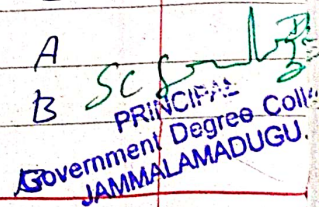 A
B
PRINCIPAL
Government Degree Coll
JAMMALAMADUGU.